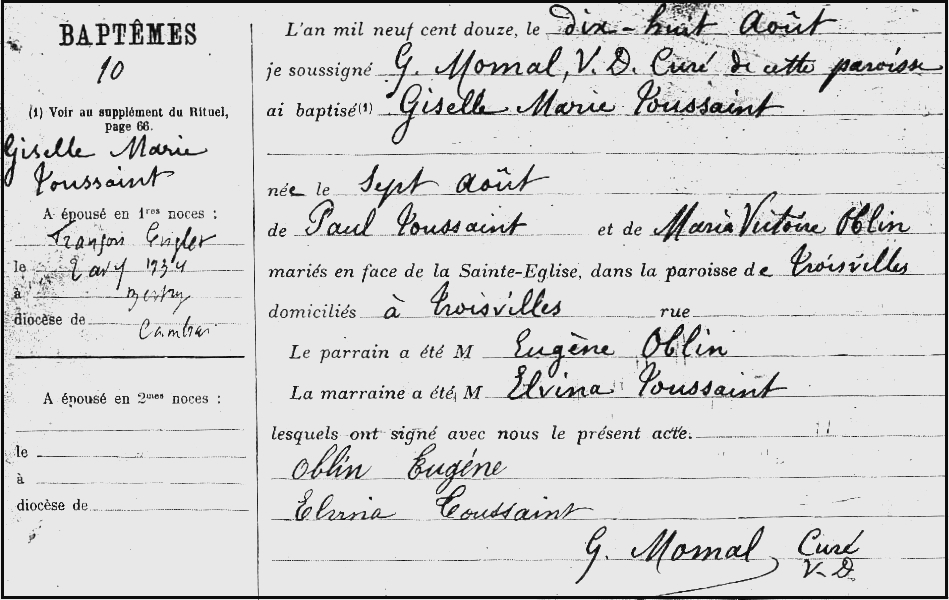 BAPTÊMES
10
(1) Voir au supplément du Rituel,
page 66.
Giselle Marie
Toussaint
A épousé en 1res noces :
le 2 avril
à
diocèse de Cambrai
A épousé en 2mes noces :
le
à
diocèse de
L'an mil neuf cent douze, le dix-huit Août
je soussigné G. Momal, V. D. Curé de cette paroisse
ai baptisé (1) Giselle Marie Toussaint
née le Sept Août
de Paul Toussaint et de Maria Victoire Oblin
mariés en face de la Sainte-Eglise, dans la paroisse de Troisvilles
domiciliés à Troisvilles rue
Le parrain a été M Eugène Oblin
La marraine a été M Elvina Toussaint
lesquels ont signé avec nous le présent acte.
Oblin Eugéne
Elvina Toussaint
G. Momal Curé
V. D.